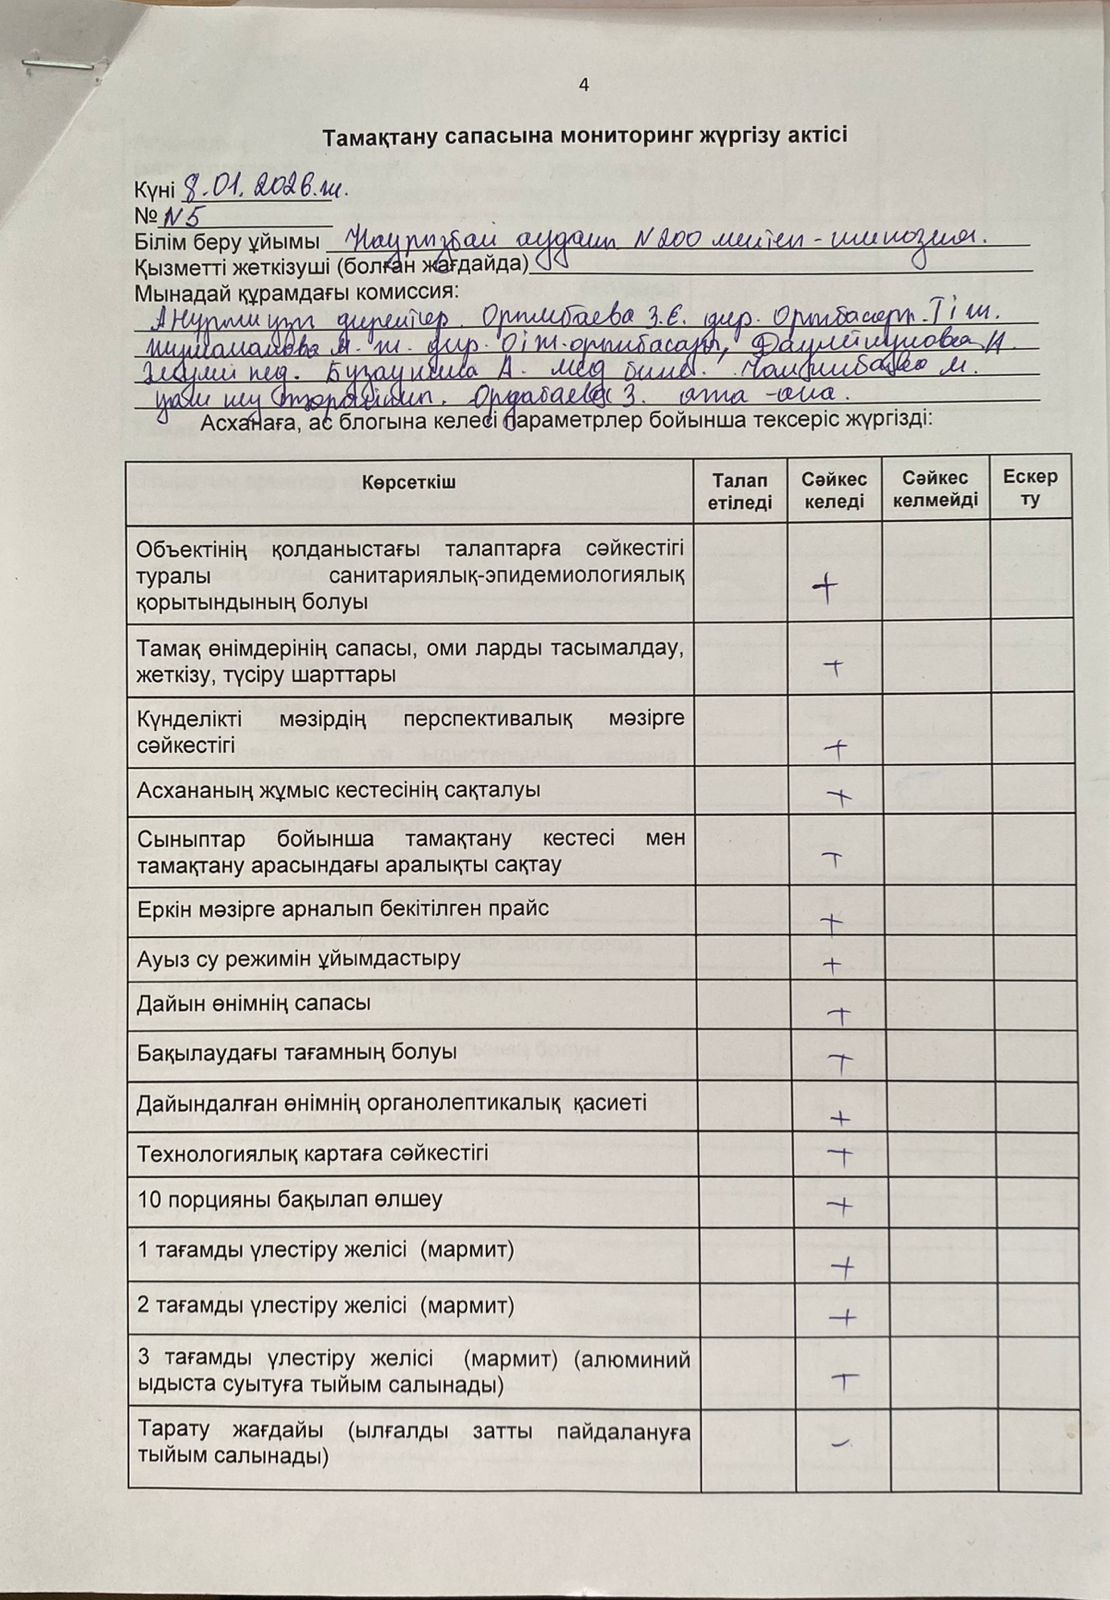 4
Тамақтану сапасына мониторинг жүргізу актісі
Күні 8.01.2026.ж.
№ N5
Білім беру ұйымы Наурызбай ауданы N200 мектеп-гимназия.
Қызметті жеткізуші (болған жағдайда)
Мынадай құрамдағы комиссия:
директор. Орынбаева З.Е. дир. Орынбасары.
дир. орынбасары,
пед. А. мед М.
Ордабаева З. ата-ана.
Асханаға, ас блогына келесі параметрлер бойынша тексеріс жүргізді:
Көрсеткіш Талап етіледі Сәйкес келеді Сәйкес келмейді Ескер ту
Объектінің қолданыстағы талаптарға сәйкестігі
туралы санитариялық-эпидемиологиялық
қорытындының болуы +
Тамақ өнімдерінің сапасы, оми ларды тасымалдау,
жеткізу, түсіру шарттары +
Күнделікті мәзірдің перспективалық мәзірге
сәйкестігі +
Асхананың жұмыс кестесінің сақталуы +
Сыныптар бойынша тамақтану кестесі мен
тамақтану арасындағы аралықты сақтау +
Еркін мәзірге арналып бекітілген прайс +
Ауыз су режимін ұйымдастыру +
Дайын өнімнің сапасы +
Бақылаудағы тағамның болуы +
Дайындалған өнімнің органолептикалық қасиеті +
Технологиялық картаға сәйкестігі +
10 порцияны бақылап өлшеу +
1 тағамды үлестіру желісі (мармит) +
2 тағамды үлестіру желісі (мармит) +
3 тағамды үлестіру желісі (мармит) (алюминий
ыдыста суытуға тыйым салынады) +
Тарату жағдайы (ылғалды затты пайдалануға
тыйым салынады) -